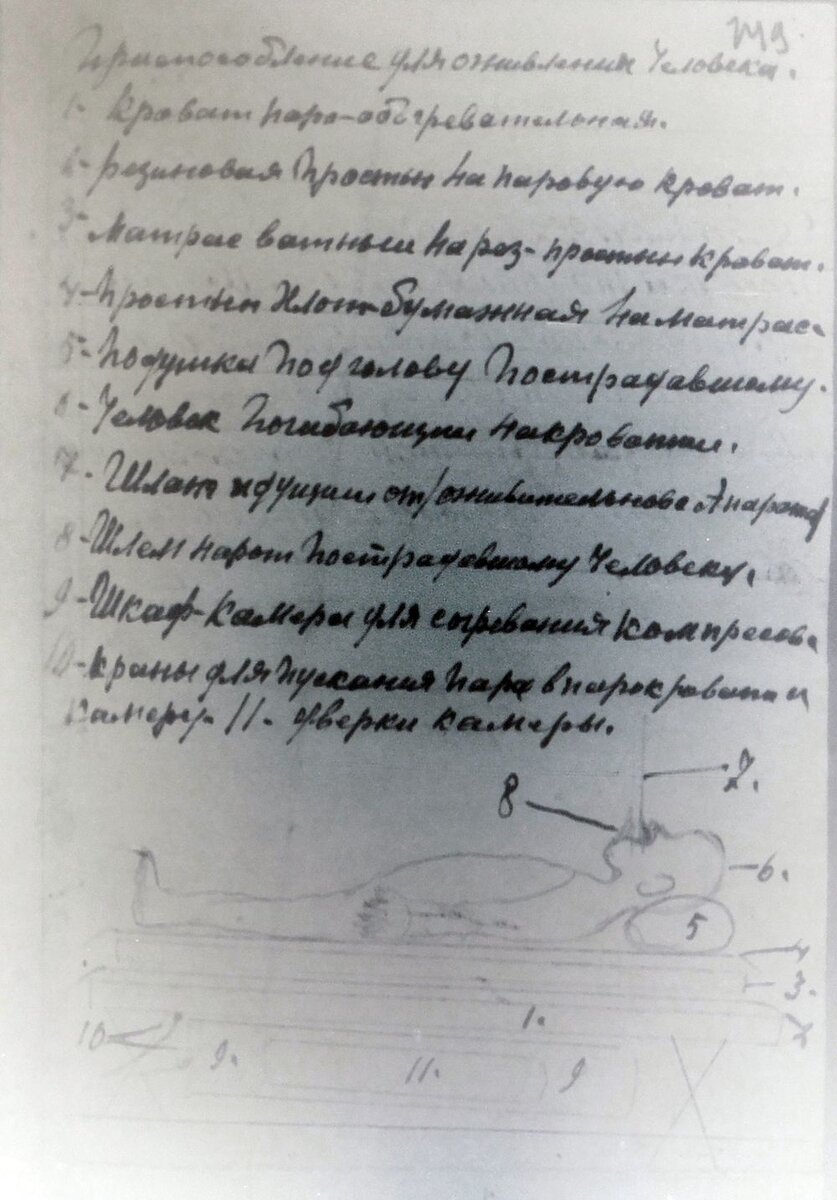 149
Приспособление для оживления Человека.
1- Кроват паро-обогревательная.
2- резиновая Простын на паровую кроват.
3- Матрас ватный на рез-простын кроват.
4- Простын Хлоп-бумажная на матрас.
5- Подушка Под голову Пострадавшому.
6- Человек Погибающий на кроватии.
7- Шланг идущии от/оживительнова Апарата
8- Шлем на рот Пострадавшому Человеку.
9- Шкаф-Камера для согревания компресов.
10- краны для Пускания Пара в парокровать и
камеру. 11. дверки камеры.
7.
8
6.
5
4
3.
1.
2
10
9.
11.
9